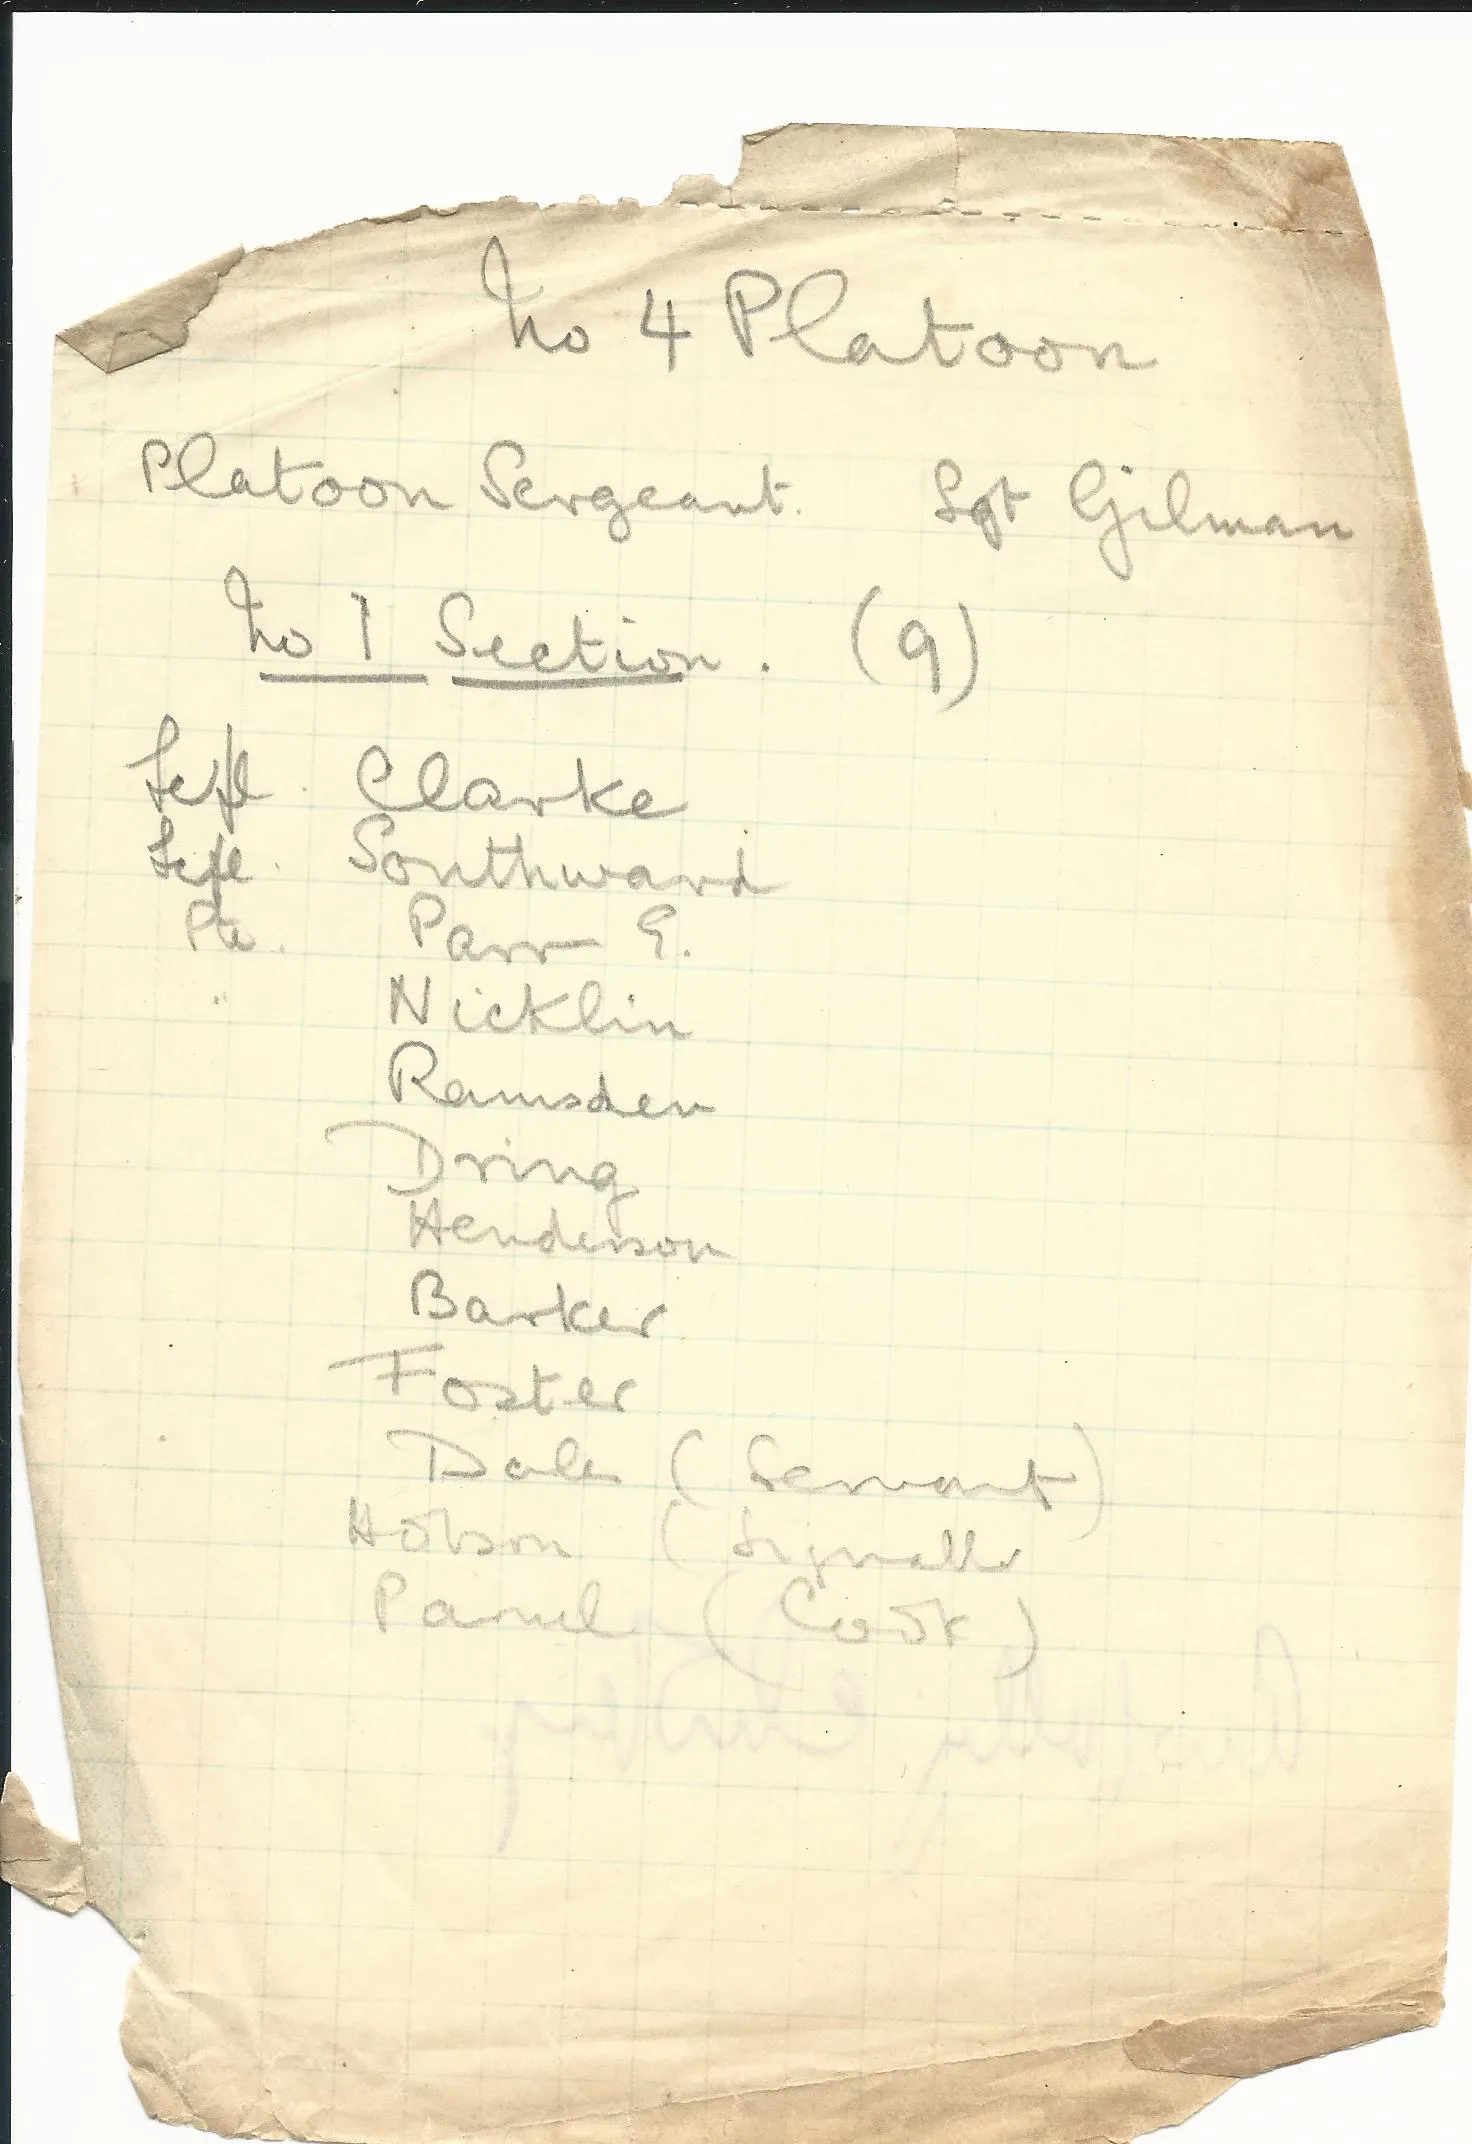 No 4 Platoon
Platoon Sergeant. Sgt Gilman
No 1 Section. (9)
Clarke
Southward
Pte. Parr E.
" Nicklin
Ramsden
Dring
Henderson
Barker
Foster
Dale (Servant)
Hobson (Signaller
(Cook)